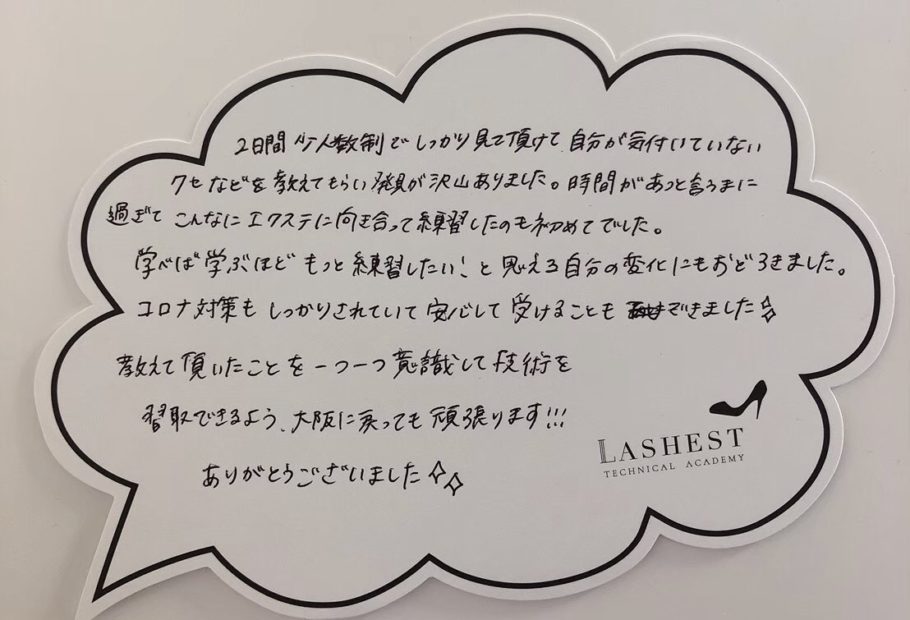 2日間 少人数制でしっかり見て頂けて 自分が気付いていない
クセなどを教えてもらい発見が沢山ありました。時間があっと言うまに
過ぎて こんなにエクステに向き合って練習したのも初めてでした。
学べば学ぶほど もっと練習したい!と思える自分の変化にもおどろきました。
コロナ対策も しっかりされていて安心して受けることも できました✧
教えて頂いたことを一つ一つ意識して技術を
習取できるよう、大阪に戻っても頑張ります!!!
ありがとうございました✧✧
LASHEST
TECHNICAL ACADEMY